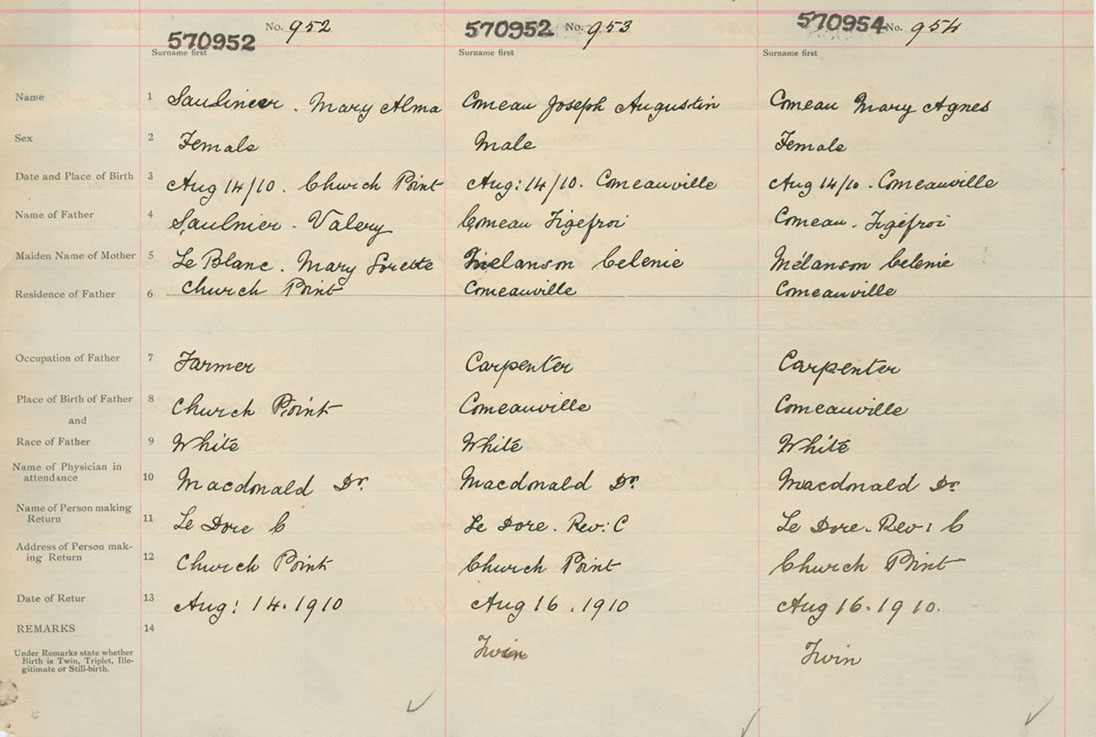 570952 No. 952 570952 No. 953 570954 No. 954
Surname first Surname first Surname first
Name 1 Saulineer. Mary Alma Comeau Joseph Augustin Comeau Mary Agnes
Sex 2 Female Male Female
Date and Place of Birth 3 Aug 14/10. Church Point Aug: 14/10. Comeauville Aug 14/10. Comeauville
Name of Father 4 Saulnier - Valery Comeau Figefroi Comeau. Figéfroi
Maiden Name of Mother 5 Le Blanc. Mary Lorette Melanson Celenie Mélanson Celenie
Residence of Father 6 Church Point Comeauville Comeauville
Occupation of Father 7 Farmer Carpenter Carpenter
Place of Birth of Father 8 Church Point Comeauville Comeauville
and
Race of Father 9 White White White
Name of Physician in
attendance 10 Macdonald Dr. Macdonald Dr. Macdonald Dr.
Name of Person making
Return 11 Le Dore C Le Dore. Rev: C Le Dore. Rev: C
Address of Person mak-
ing Return 12 Church Point Church Point Church Point
Date of Retur 13 Aug: 14. 1910 Aug 16. 1910 Aug 16. 1910.
REMARKS 14
Under Remarks state whether
Birth is Twin, Triplet, Ille-
gitimate or Still-birth.
Twin Twin